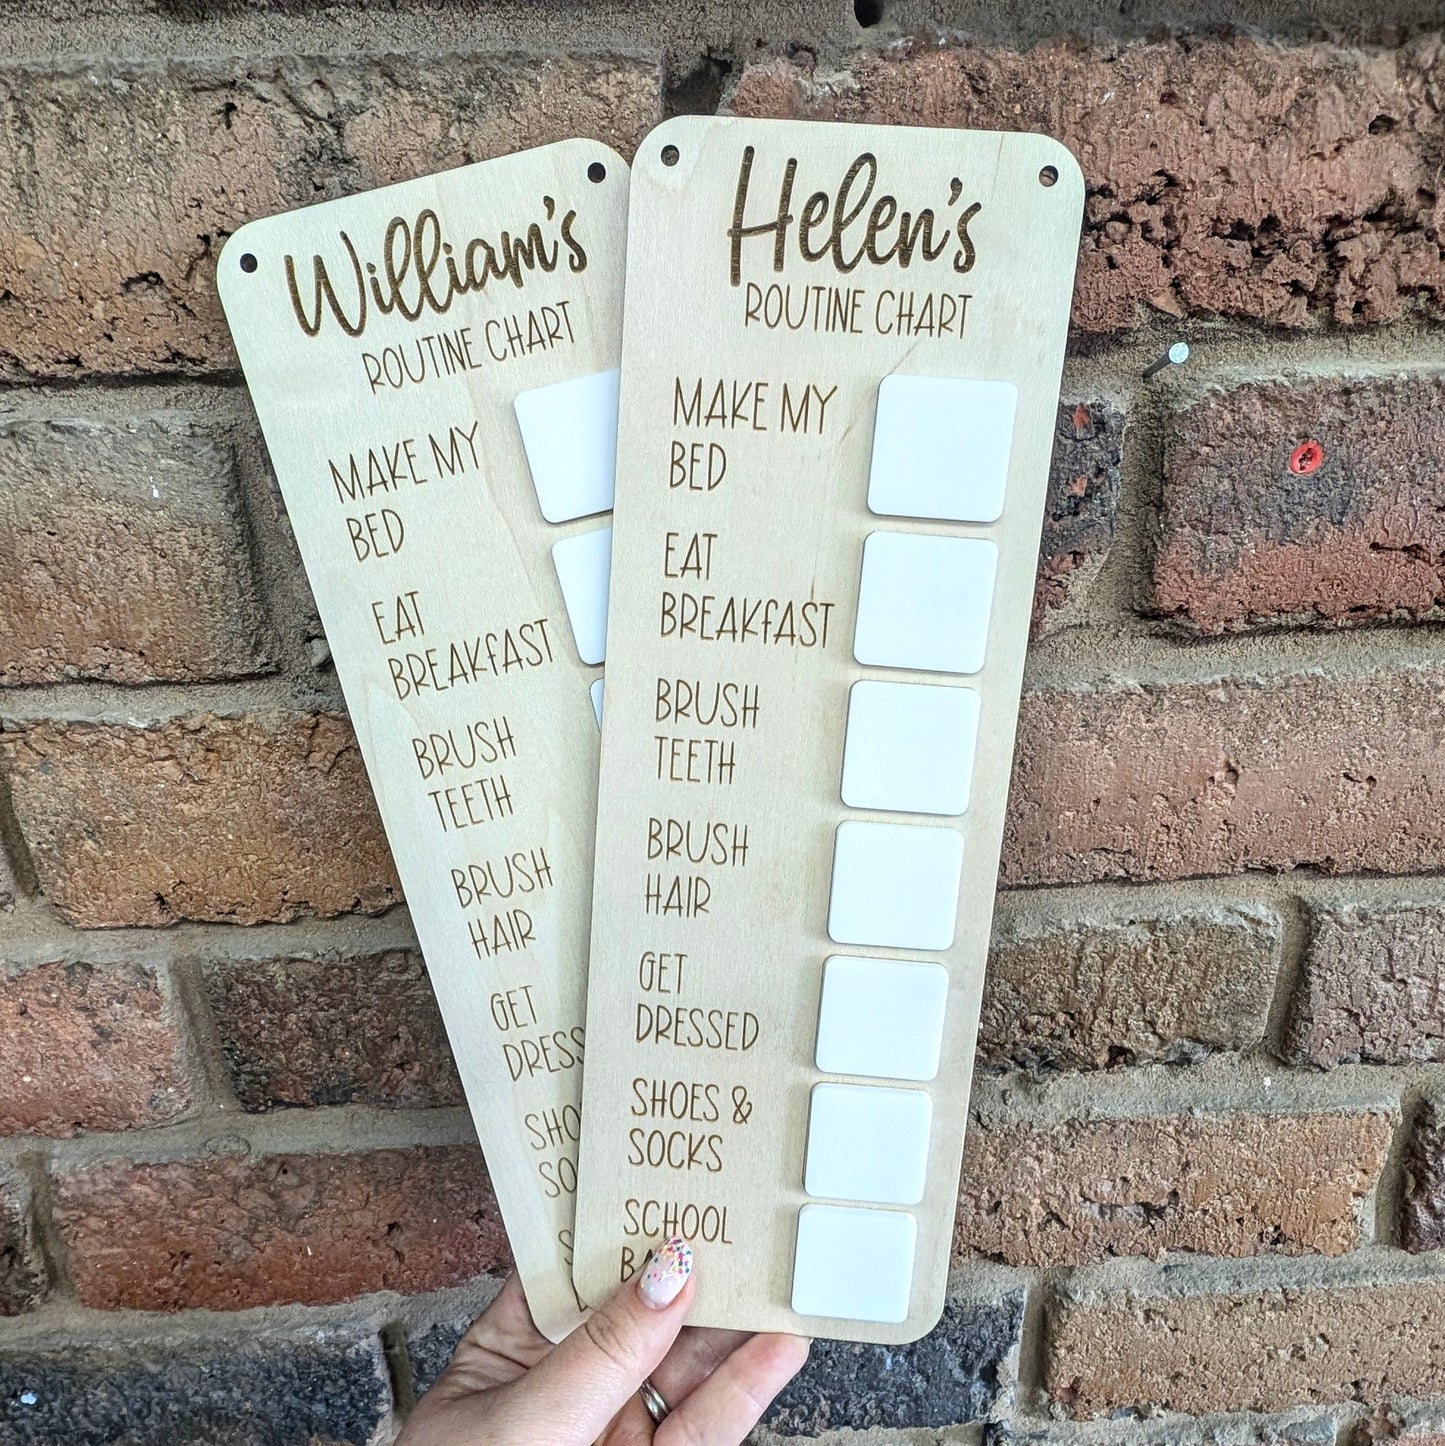 William's
ROUTINE CHART
MAKE MY
BED
EAT
BREAKFAST
BRUSH
TEETH
BRUSH
HAIR
GET
Helen's
ROUTINE CHART
MAKE MY
BED
EAT
BREAKFAST
BRUSH
TEETH
BRUSH
HAIR
GET
DRESSED
SHOES &
SOCKS
SCHOOL